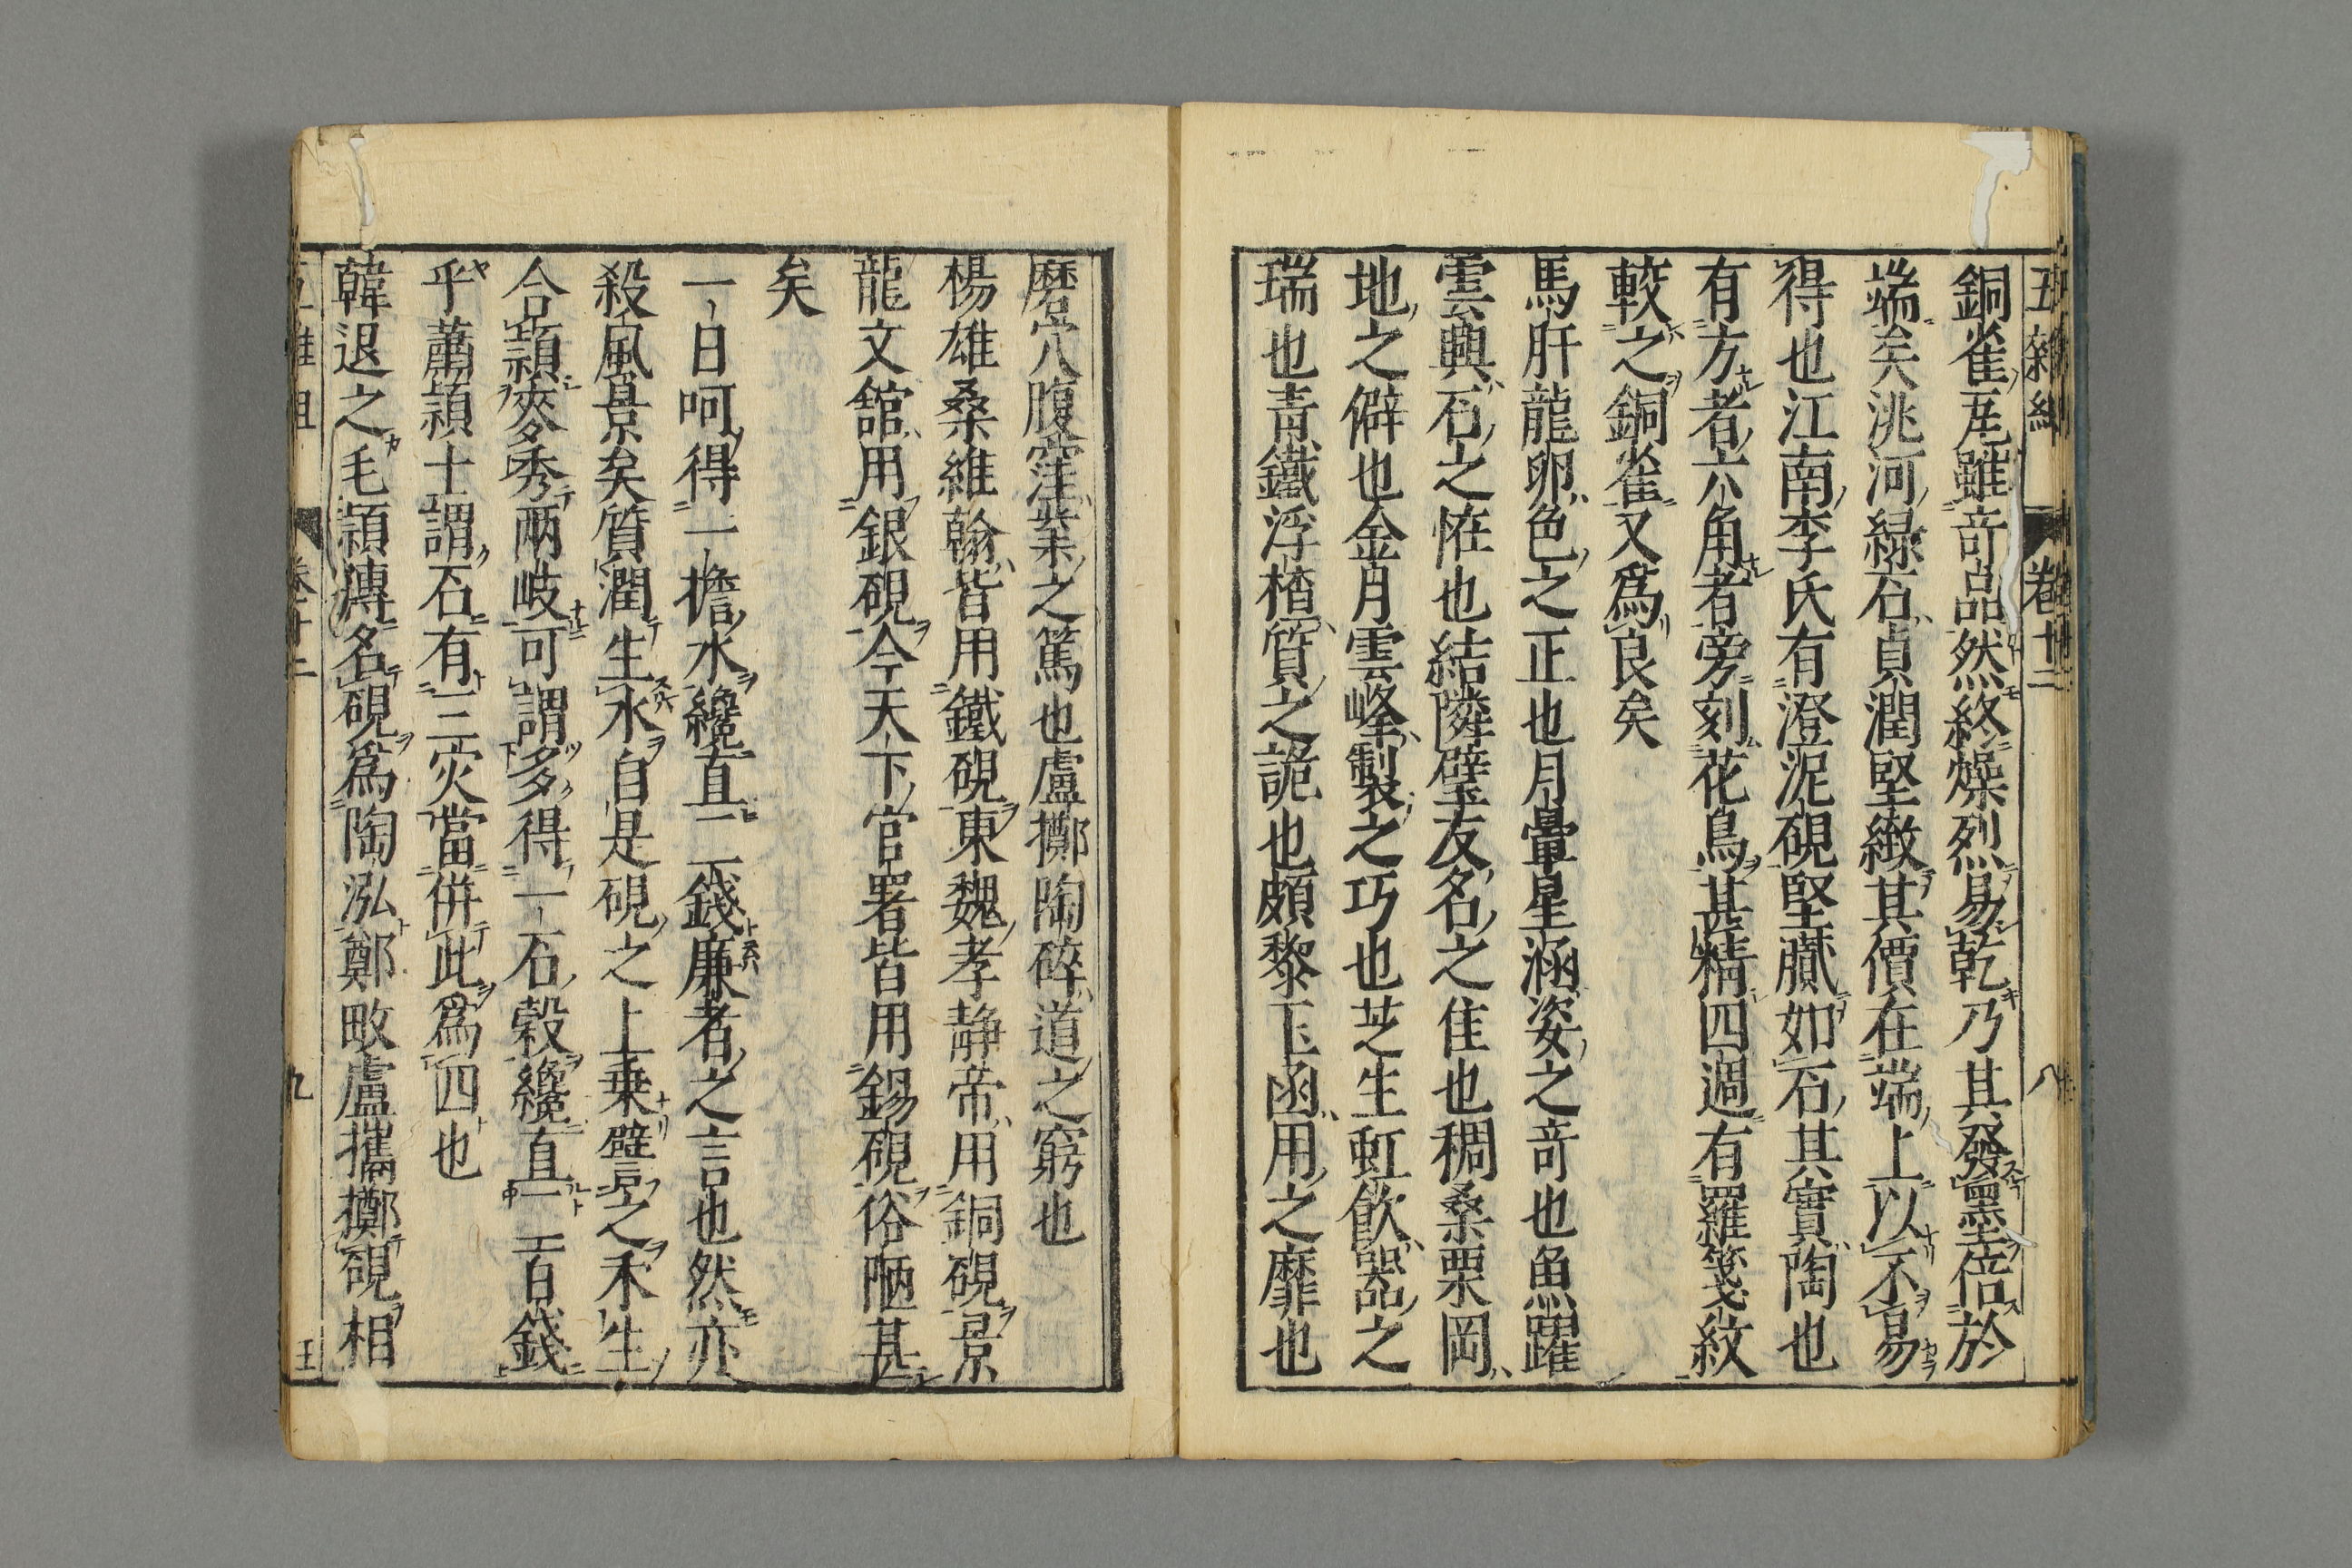 五雜組 卷十二 八
銅雀瓦雖奇品然終燥烈易乾乃其發墨倍於
端矣洮河綠石貞潤堅緻其價在端上以不易
得也江南李氏有澄泥硯堅膩如石其實陶也
有方者六角者旁刻花鳥甚精四週有羅箋紋
較之銅雀又爲良矣
馬肝龍卵色之正也月暈星涵姿之奇也魚躍
雲興石之恠也結隣璧友名之佳也稠桑栗岡
地之僻也金月雲峰製之巧也芝生虹飲器之
瑞也青鐵浮楂質之詭也頗黎玉函用之靡也
磨穴腹窪業之篤也盧擲陶碎道之窮也
楊雄桑維翰皆用鐵硯東魏孝静帝用銅硯景
龍文舘用銀硯今天下官署皆用錫硯俗陋甚
矣
一日呵得一擔水纔直二錢廉者之言也然亦
殺風景矣質潤生水自是硯之上乗譬之禾生
合頴麥秀兩岐可謂多得一石穀纔直二百錢
乎蕭頴士謂石有三灾當併此爲四也
韓退之毛頴傳名硯爲陶泓鄭畋盧攜擲硯相
五雜組 卷十二 九